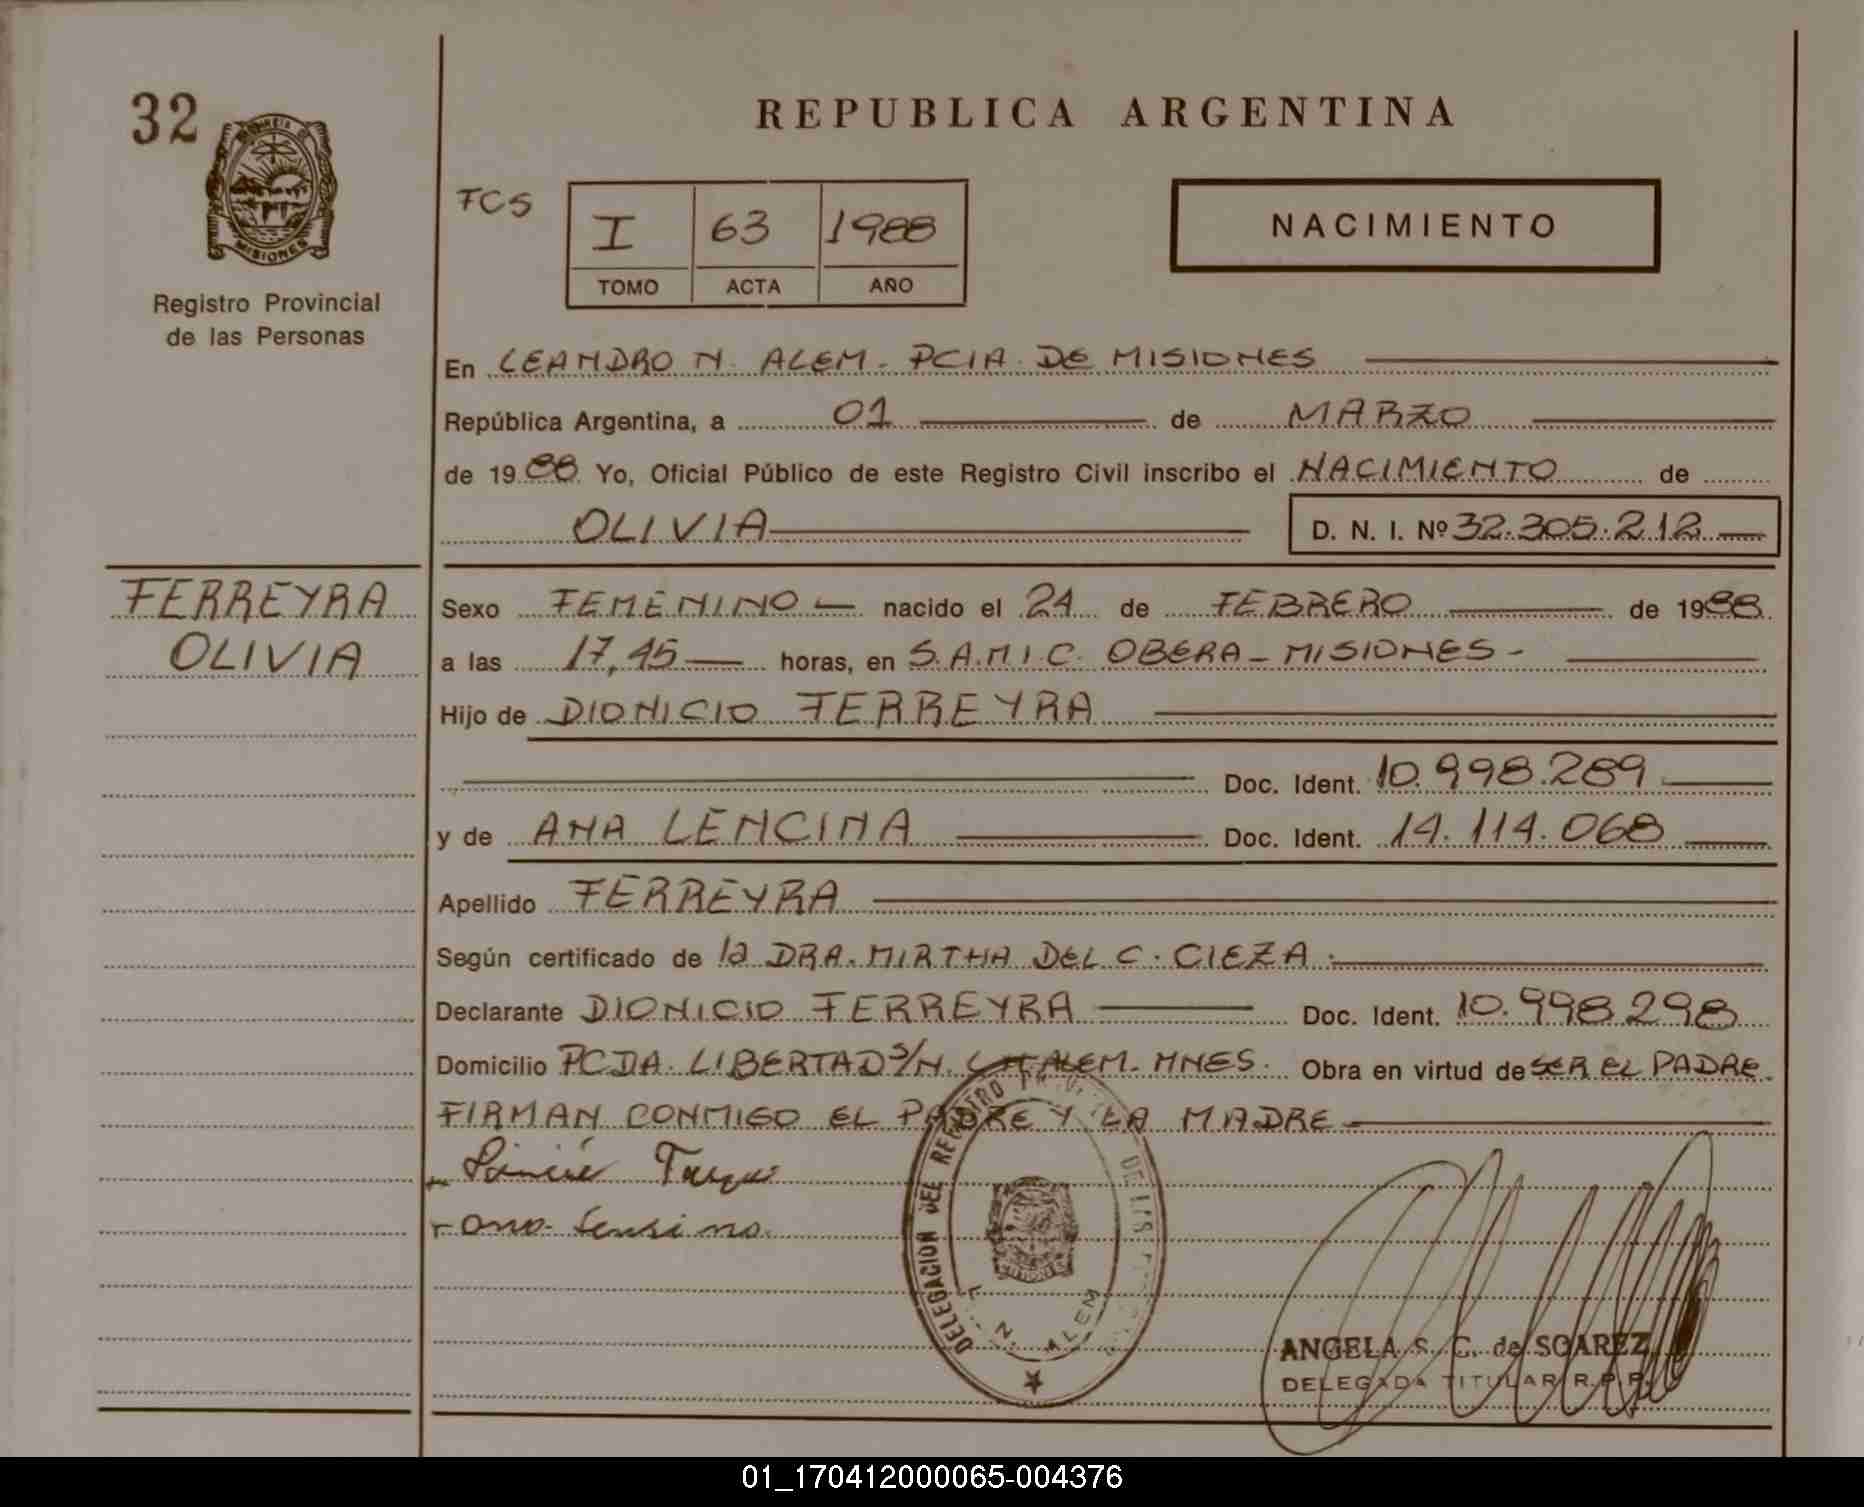 32
REPUBLICA ARGENTINA
MISIONES
Registro Provincial
de las Personas
FCS
I 63 1988
TOMO ACTA AÑO
NACIMIENTO
En LEANDRO N. ALEM - PCIA. DE MISIONES
República Argentina, a 01 de MARZO
de 1988 Yo, Oficial Público de este Registro Civil inscribo el NACIMIENTO de
OLIVIA D. N. I. Nº 32.305.212
FERREYRA
OLIVIA
Sexo FEMENINO nacido el 24 de FEBRERO de 1988
a las 17,45 horas, en S.A.M.I.C. OBERA - MISIONES -
Hijo de DIONICIO FERREYRA
Doc. Ident. 10.998.289
y de ANA LENCINA Doc. Ident. 14.114.068
Apellido FERREYRA
Según certificado de la DRA. MIRTHA DEL C. CIEZA
Declarante DIONICIO FERREYRA Doc. Ident. 10.998.298
Domicilio PCDA. LIBERTAD S/N. ALEM - MNES. Obra en virtud de SER EL PADRE
FIRMAN CONMIGO EL PADRE Y LA MADRE
DELEGACION DEL REGISTRO DE LAS
L. N. ALEM
ANGELA S. C. de SOAREZ
DELEGADA TITULAR R.P.P.
01_170412000065-004376